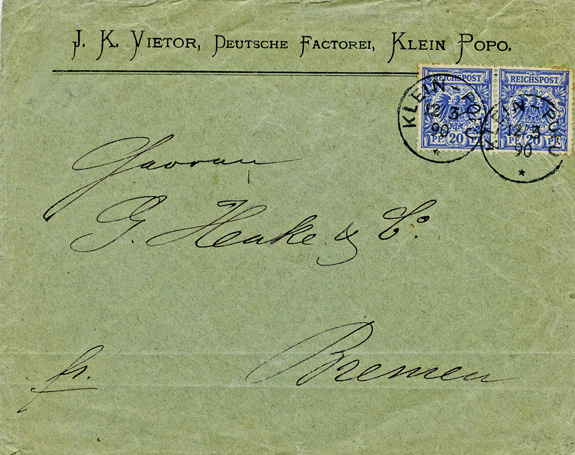 J. K. Vietor, Deutsche Factorei, Klein Popo.
REICHSPOST REICHSPOST
KLEIN-POPO KLEIN-POPO
12/3 12/3
90 90
PF 20 PF PF 20 PF
* *
Herren
G. Henke & Co.
fr.
Bremen